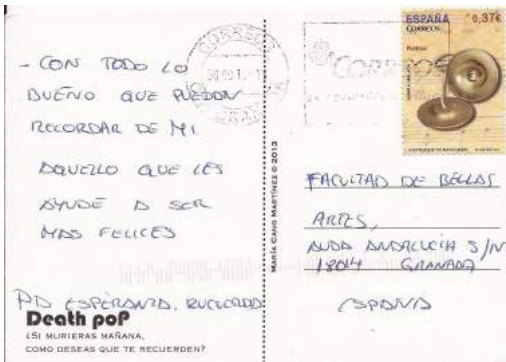 - CON TODO LO
BUENO QUE PUEDAN
RECORDAR DE MI.
AQUELLO QUE LES
AYUDE A SER
MAS FELICES
PD ESPERANZA.
Death poP
¿SI MURIERAS MAÑANA,
COMO DESEAS QUE TE RECUERDEN?
MARÍA CANO MARTÍNEZ © 2013
CORREOS
CORREOS
ESPAÑA 0,37€
CORREOS
FACULTAD DE BELLAS
ARTES,
AVDA ANDALUCIA S/N
18014 GRANADA
ESPAÑA